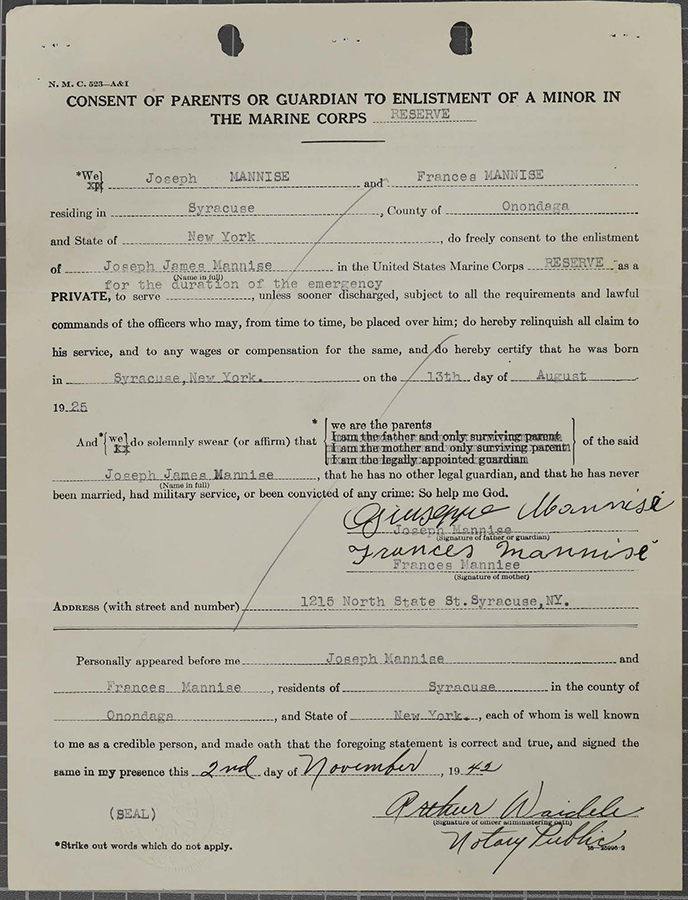 N. M. C. 523—A&I
CONSENT OF PARENTS OR GUARDIAN TO ENLISTMENT OF A MINOR IN
THE MARINE CORPS RESERVE
*We} Joseph MANNISE and Frances MANNISE
residing in Syracuse, County of Onondaga
and State of New York, do freely consent to the enlistment
of Joseph James Mannise in the United States Marine Corps RESERVE as a
(Name in full)
for the duration of the emergency
PRIVATE, to serve, unless sooner discharged, subject to all the requirements and lawful
commands of the officers who may, from time to time, be placed over him; do hereby relinquish all claim to
his service, and to any wages or compensation for the same, and do hereby certify that he was born
in Syracuse, New York. on the 13th day of August
19 25
* we are the parents
I am the father and only surviving parent
And* {we do solemnly swear (or affirm) that I am the mother and only surviving parent of the said
I am the legally appointed guardian
Joseph James Mannise, that he has no other legal guardian, and that he has never
(Name in full)
been married, had military service, or been convicted of any crime: So help me God.
Giuseppe Mannisé
Joseph Mannise
(Signature of father or guardian)
Frances Mannisé
Frances Mannise
(Signature of mother)
ADDRESS (with street and number) 1215 North State St. Syracuse, NY.
Personally appeared before me Joseph Mannise and
Frances Mannise, residents of Syracuse in the county of
Onondaga, and State of New York., each of whom is well known
to me as a credible person, and made oath that the foregoing statement is correct and true, and signed the
same in my presence this 2nd day of November, 19 42
(SEAL)
Arthur Waidele
(Signature of officer administering oath)
Notary Public
*Strike out words which do not apply.